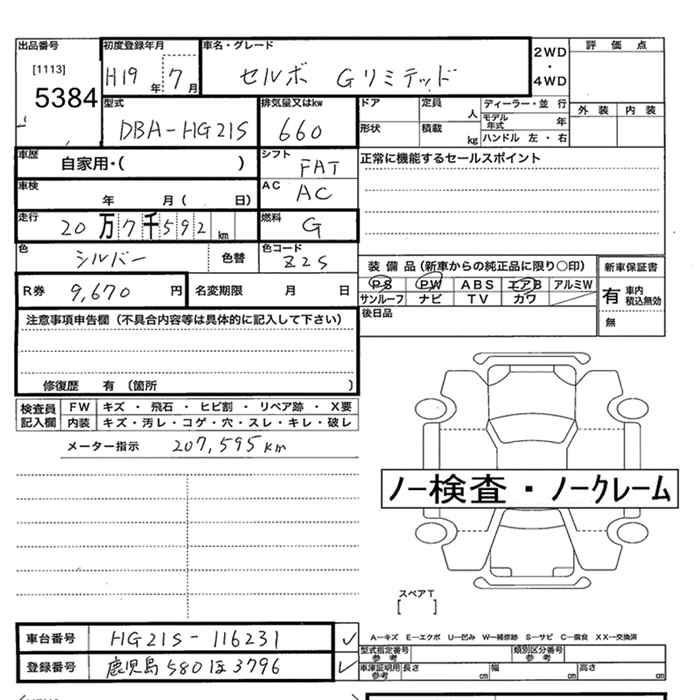 出品番号 初度登録年月 車名・グレード 評価点
[1113] 5384 H19年 7月 セルボ Gリミテッド 2WD・4WD
外装 内装
型式 排気量又はkw ドア 定員 人 ディーラー・並行
DBA-HG21S 660 形状 積載 kg モデル年式 年
ハンドル 左・右
車歴 自家用・( ) シフト FAT 正常に機能するセールスポイント
車検 年 月( 日) AC AC
走行 20万7千592km 燃料 G
色 シルバー 色替 色コード Z2S
装備品(新車からの純正品に限り○印) 新車保証書
R券 9,670円 名変期限 月 日 PS PW ABS エアB アルミW 有 車内積込無効
サンルーフ ナビ TV カワ 無
注意事項申告欄(不具合内容等は具体的に記入して下さい) 後日品
修復歴 有(箇所 )
検査員記入欄 FW キズ・飛石・ヒビ割・リペア跡・X要
内装 キズ・汚レ・コゲ・穴・スレ・キレ・破レ
メーター指示 207,595km
ノー検査・ノークレーム
スペアT
[ ]
車台番号 HG21S-116231 ✓ A-キズ E-エクボ U-凹み W-補修跡 S-サビ C-腐食 XX-交換済
型式指定番号 参考 類別区分番号 参考
登録番号 鹿児島580ほ3796 ✓ 車庫証明用参考 長さ cm 幅 cm 高さ cm